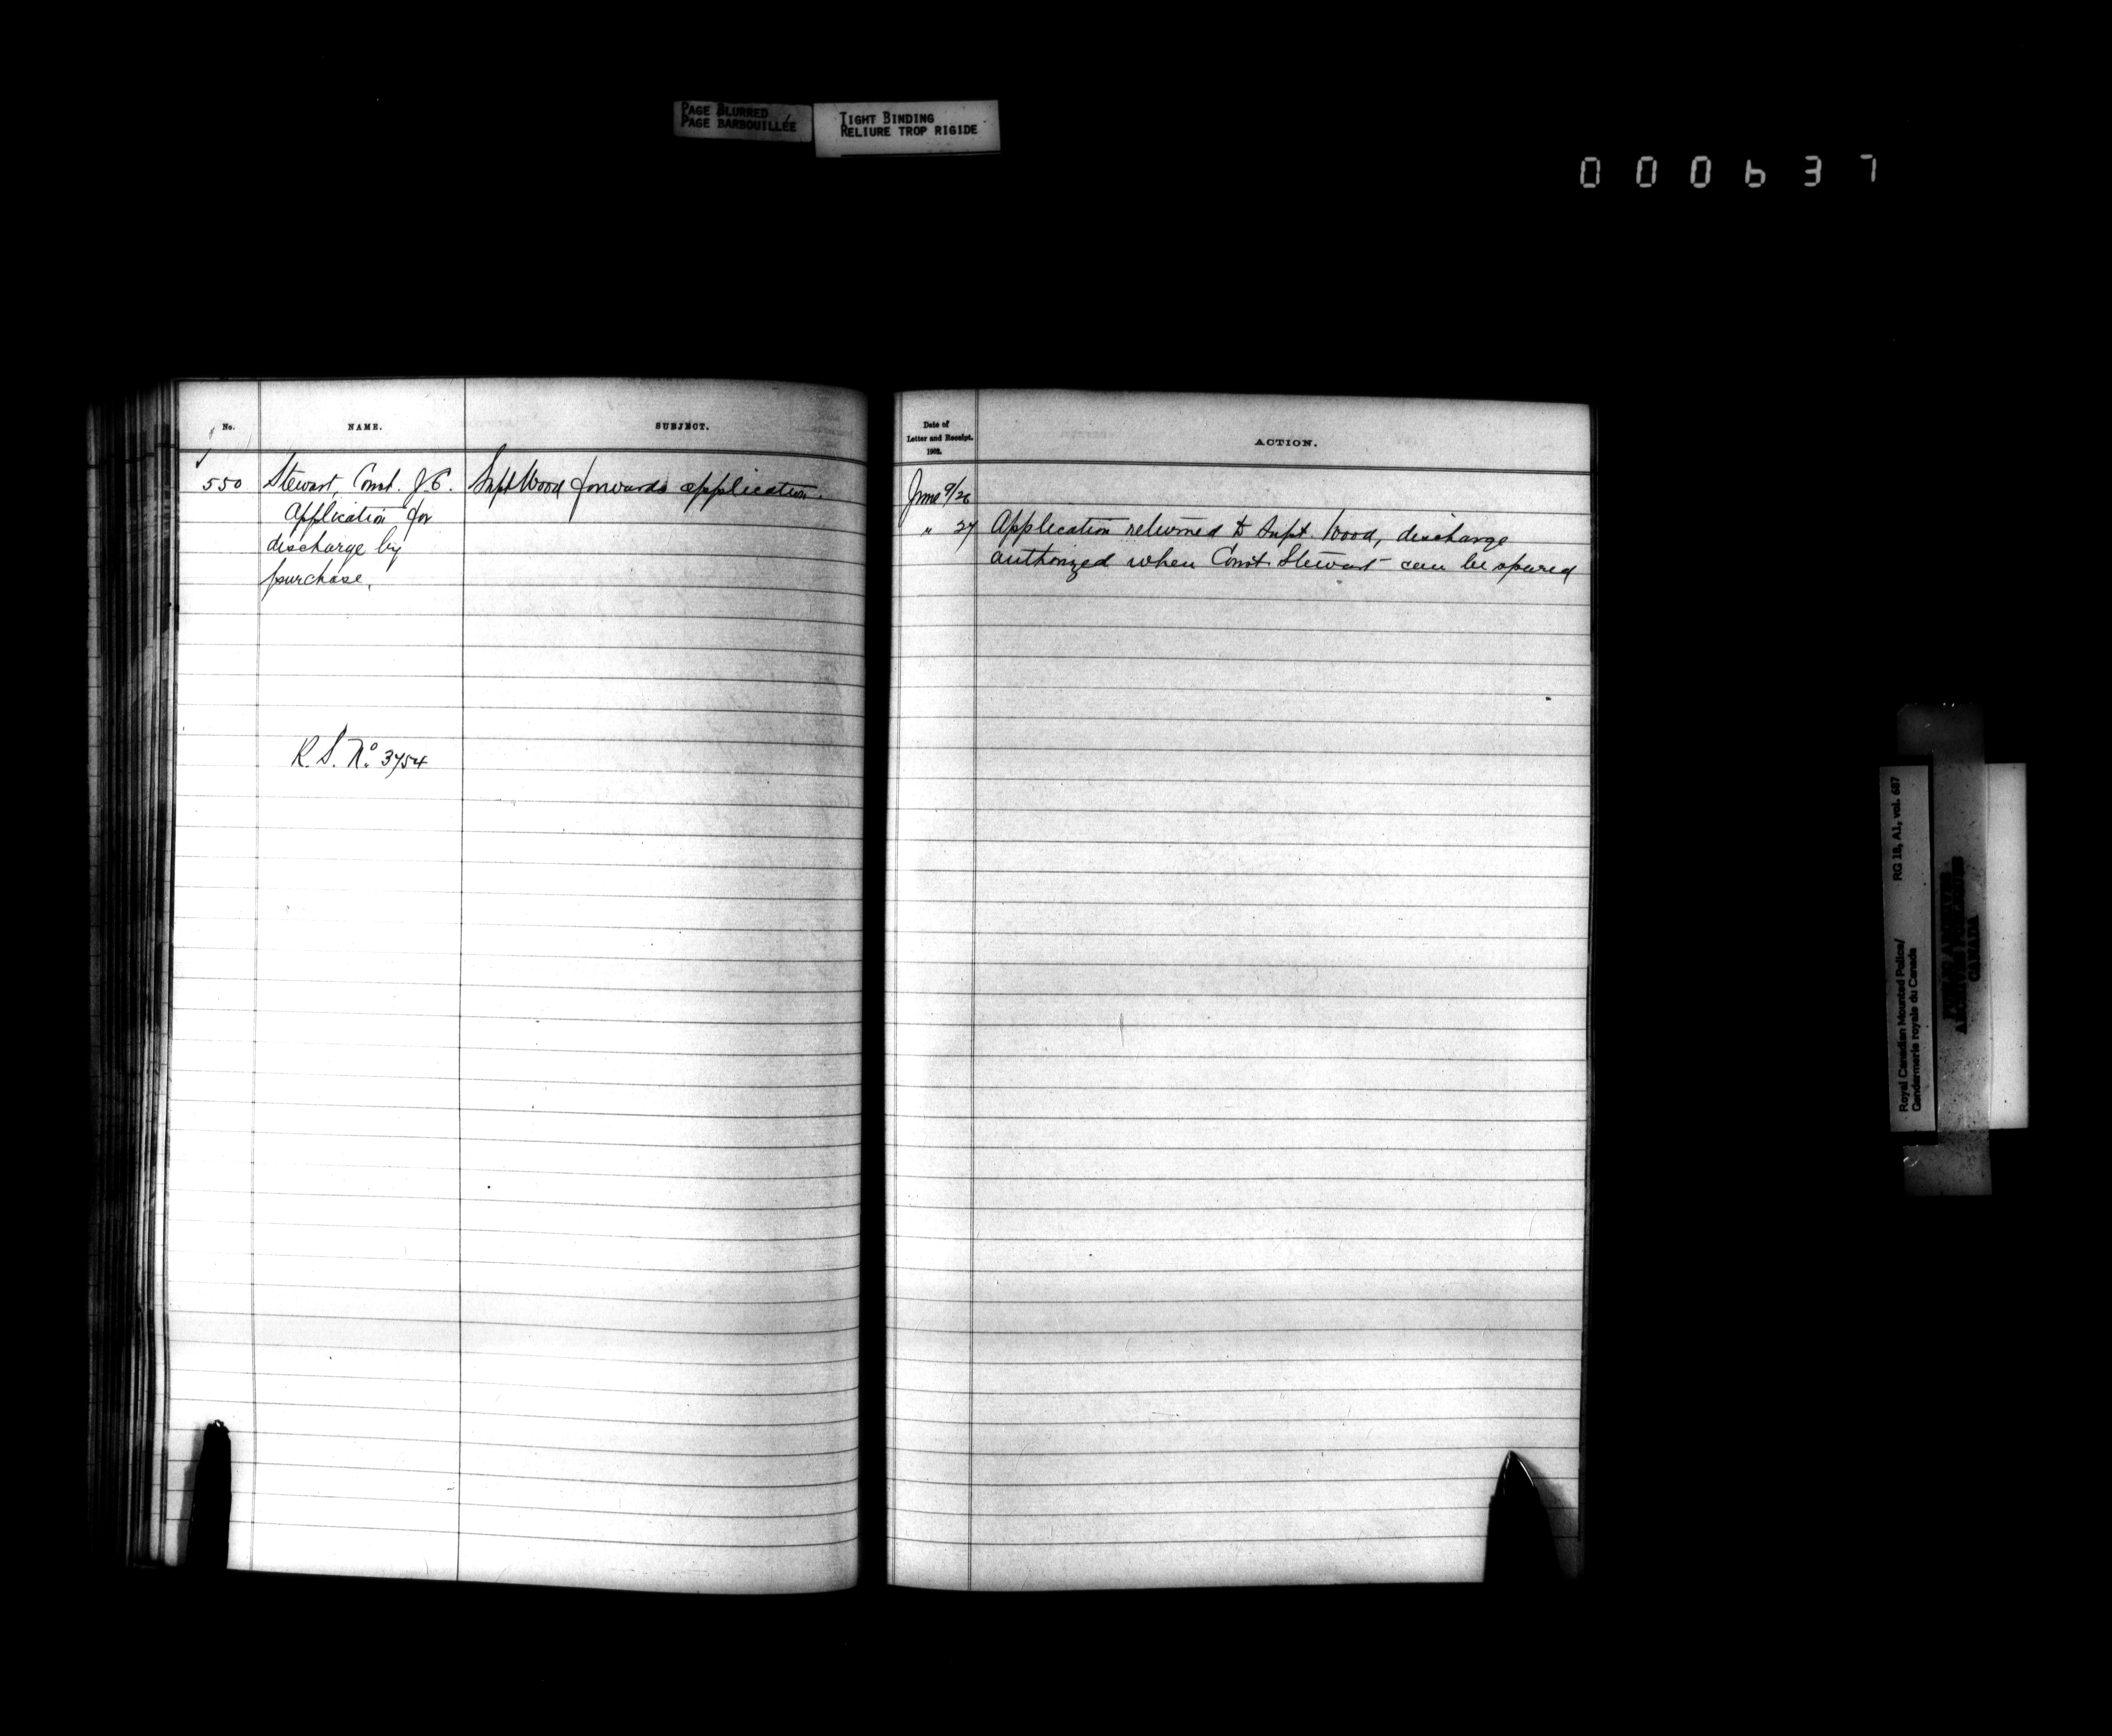 PAGE BLURRED
PAGE BARBOUILLÉE
TIGHT BINDING
RELIURE TROP RIGIDE
000637
No.
NAME.
SUBJECT.
Date of
Letter and Receipt.
1902.
ACTION.
550 Stewart, Const. J.C. Supt Wood forwards application.
Application for
discharge by
purchase.
R.S. No. 3754
June 9/26
" 27 Application returned to Supt. Wood, discharge
authorized when Const. Stewart can be spared
Royal Canadian Mounted Police/
Gendarmerie royale du Canada
RG 18, A1, vol. 687
CANADA